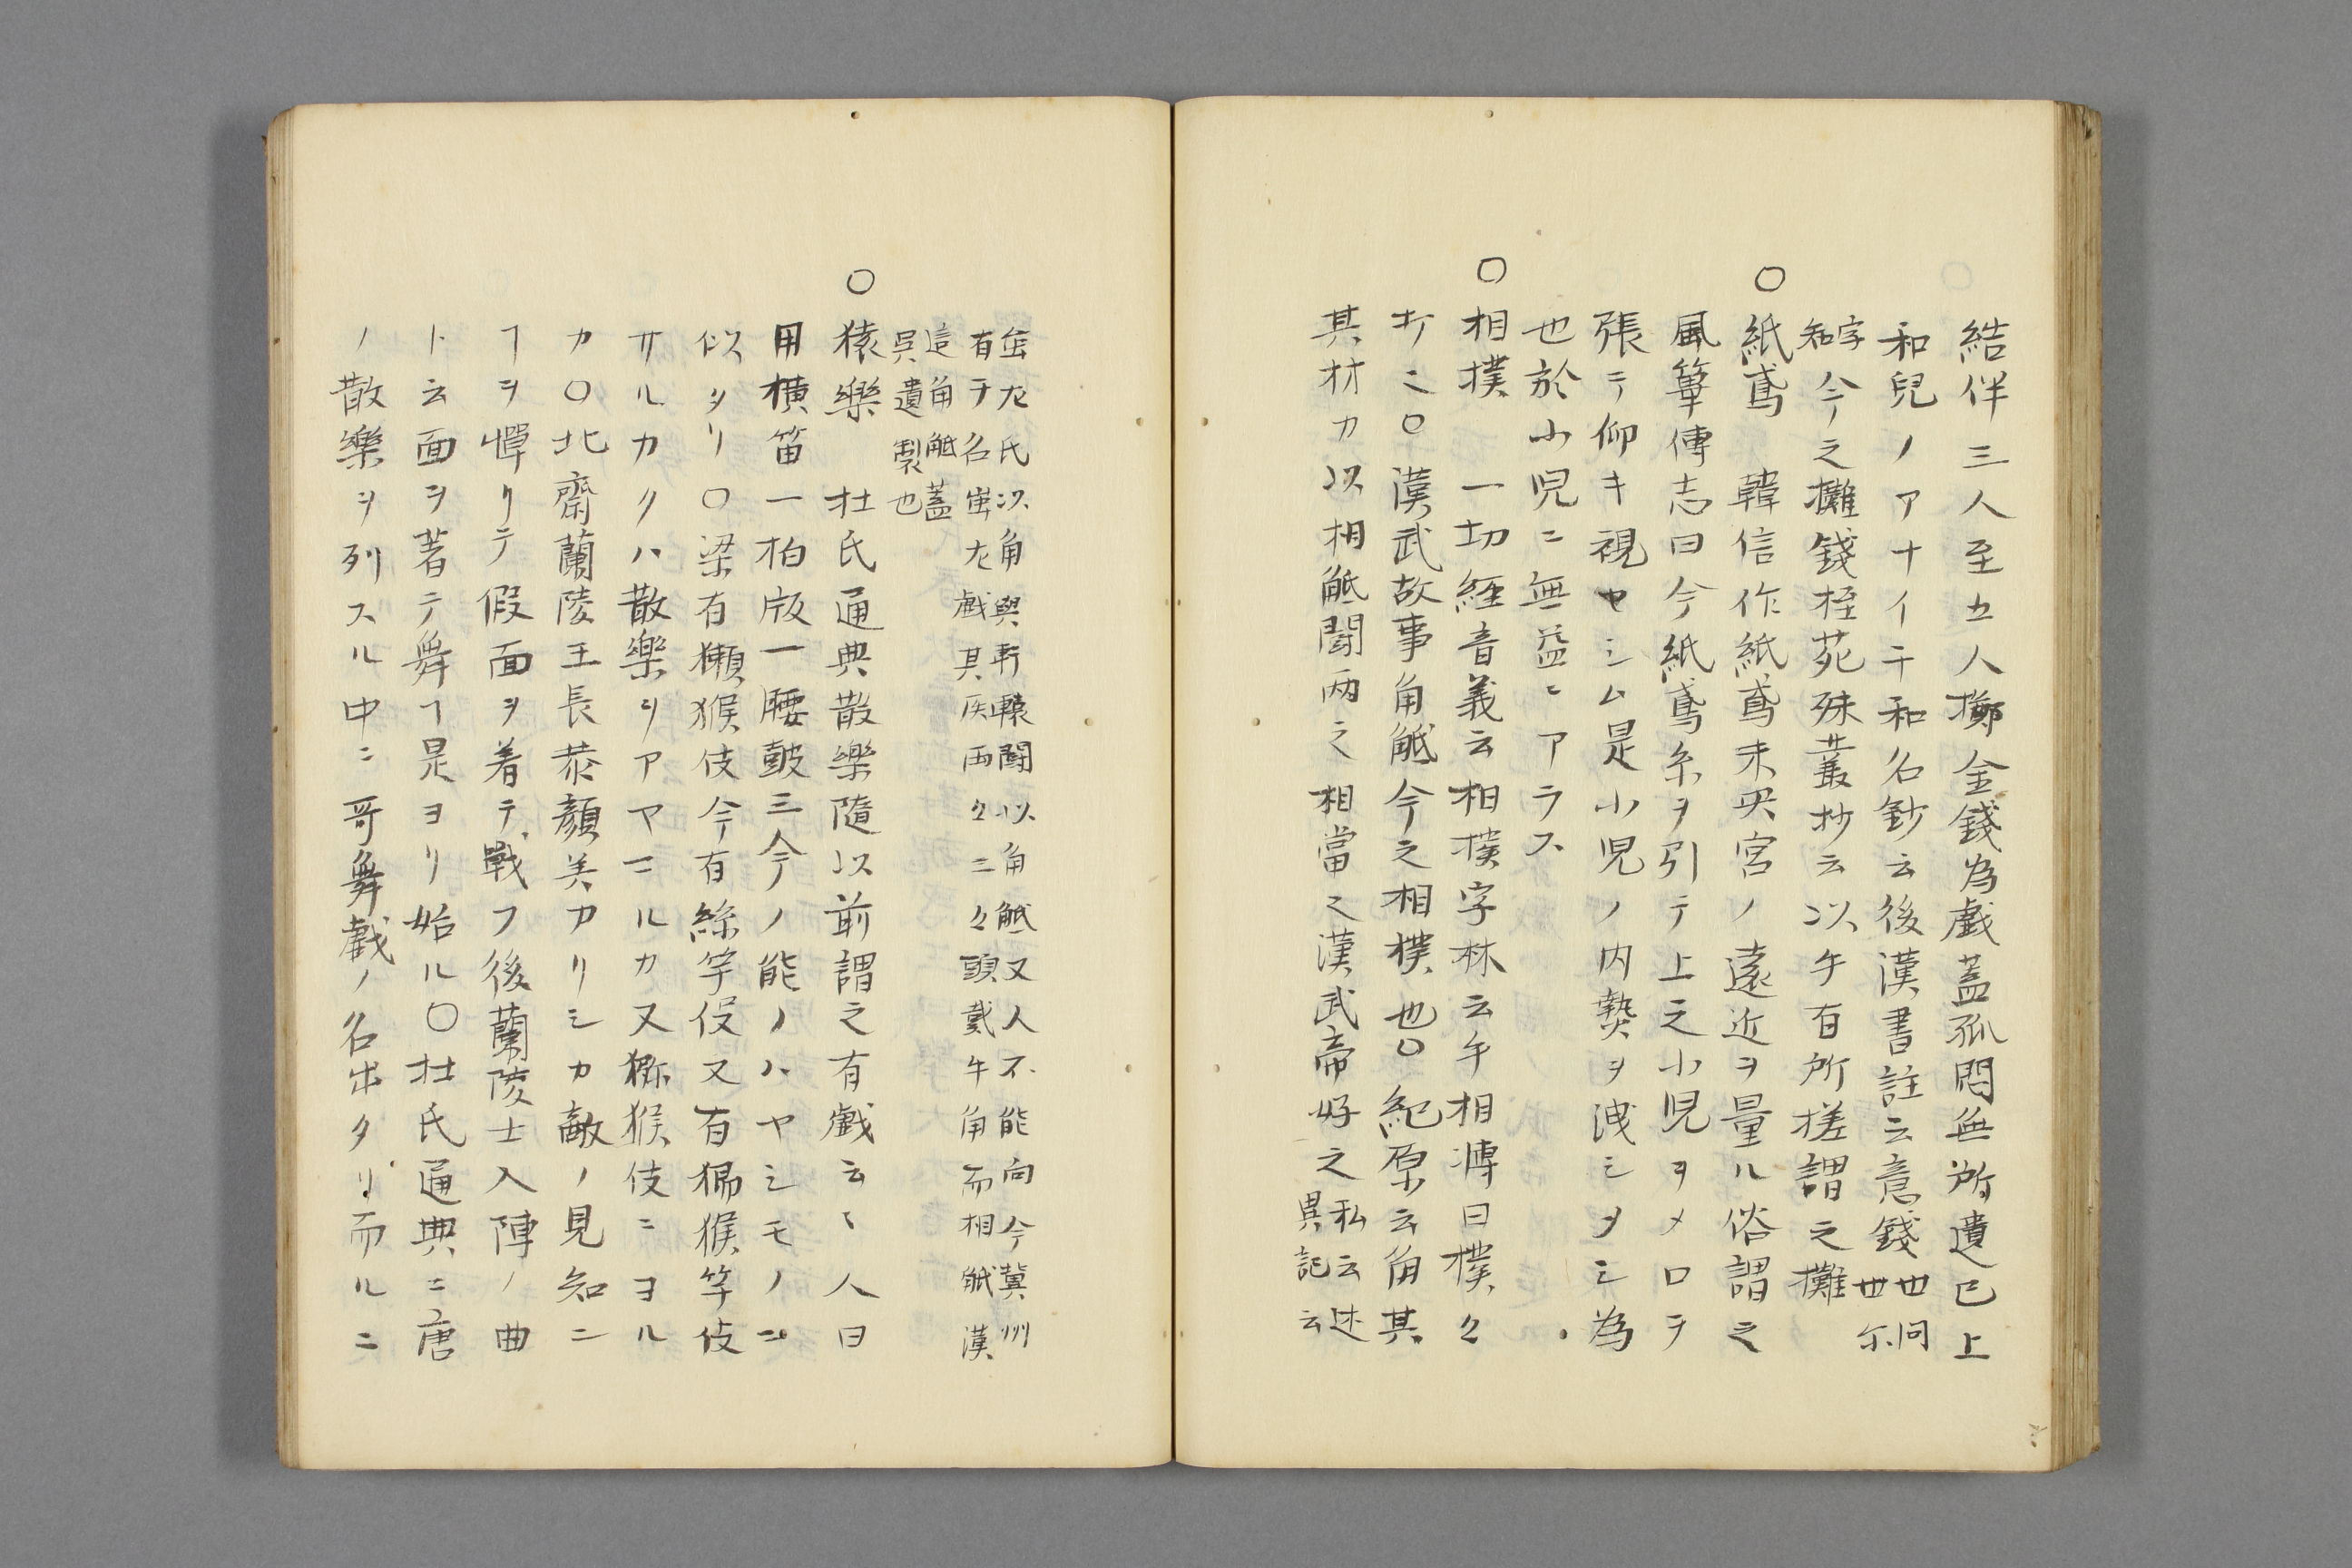 結伴三人至五人擲金錢為戲蓋孤悶無所遣已上
和兒ノアナイ千和名鈔云後漢書註云意錢世問世尓
字知今之攤錢桎苑殊叢抄云以手有所搓謂之攤
○紙鳶 韓信作紙鳶未央宮ノ遠近ヲ量ル俗謂之
風箏傳志曰今紙鳶糸ヲ引テ上之小児ヲメロテ
張テ仰キ視セシム是小児ノ内𤍠ヲ洩シタシ為
也於小児ニ無益ニアラス
○相撲 一切経音義云相撲字林云手相溥曰撲々
打ニ○漢武故事角觝今之相撲也○紀原云角其
其材力以相觝鬪两之相當之漢武帝好之私云述異記云
蚩尤氏以角與軒轅鬪以角觝又人不能向今冀州
有于名蚩尤戲其民両々三々頭戴牛角而相觝漢
這角觝蓋
呉遺製也
○猿樂 杜氏通典散樂隨以前謂之有戲云々人曰
用横笛一柏版一腰皷三今ノ能ノハヤシモノニ
似タリ○梁有獮猴伎今有絲竿伇又有猕猴竿伎
サルカクハ散樂リアヤマルカ又猕猴伎ニヨル
カ○北齋蘭陵王長恭顔美カリシカ敵ノ見知ニ
ヿヲ憚リテ假面ヲ着テ戰フ後蘭陵士入陣ノ曲
ト云面ヲ著テ舞ヿ是ヨリ始ル○杜氏通典ニ唐
ノ散樂ヲ列スル中ニ哥舞戲ノ名出タリ而ルニ